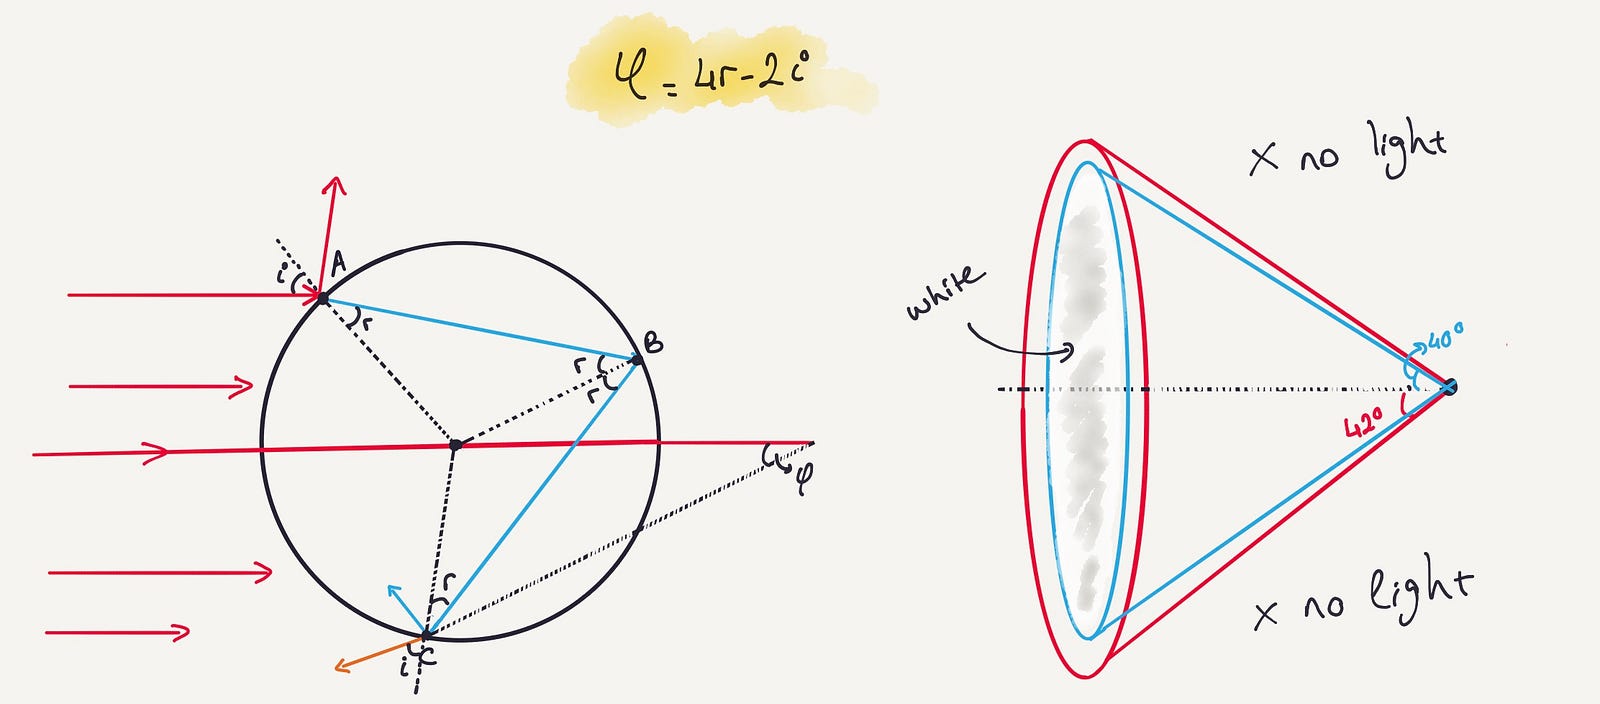 φ = 4r - 2i
i
A
r
B
r
r
φ
r
i
C
x no light
white
40°
42°
x no light